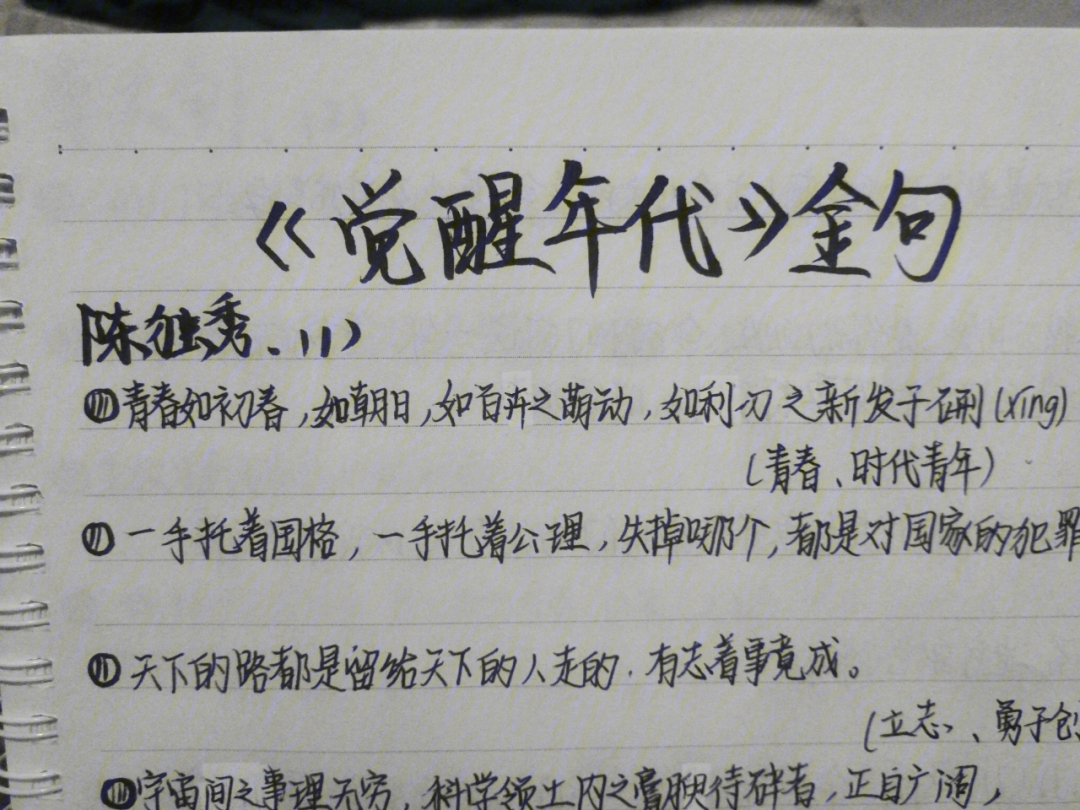 《觉醒年代》金句
陈独秀、(1)
青春如初春,如朝日,如百卉之萌动,如利刃之新发于硎(xíng)
(青春、时代青年)
一手托着国格,一手托着公理,失掉哪个,都是对国家的犯罪
天下的路都是留给天下的人走的.有志着事竟成。
(立志、勇于创
宇宙间之事理无穷,科学领土内之膏腴待辟者,正自广阔,